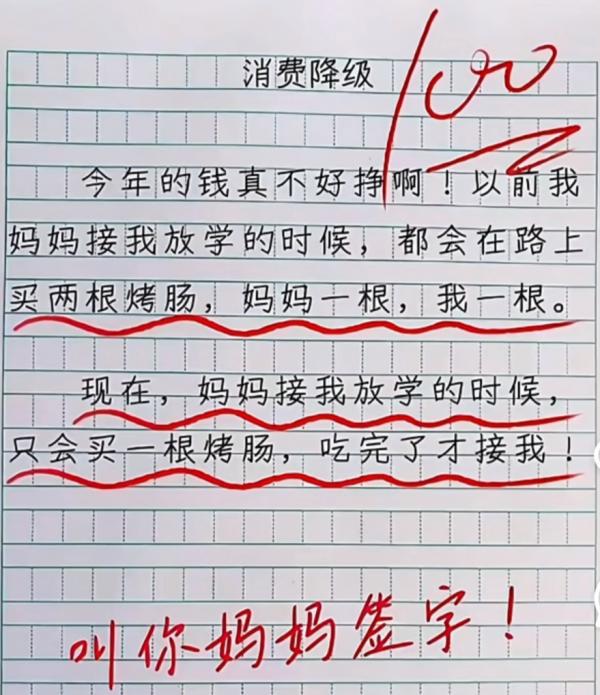 消费降级
100
今年的钱真不好挣啊！以前我
妈妈接我放学的时候，都会在路上
买两根烤肠，妈妈一根，我一根。
现在，妈妈接我放学的时候，
只会买一根烤肠，吃完了才接我！
叫你妈妈签字！